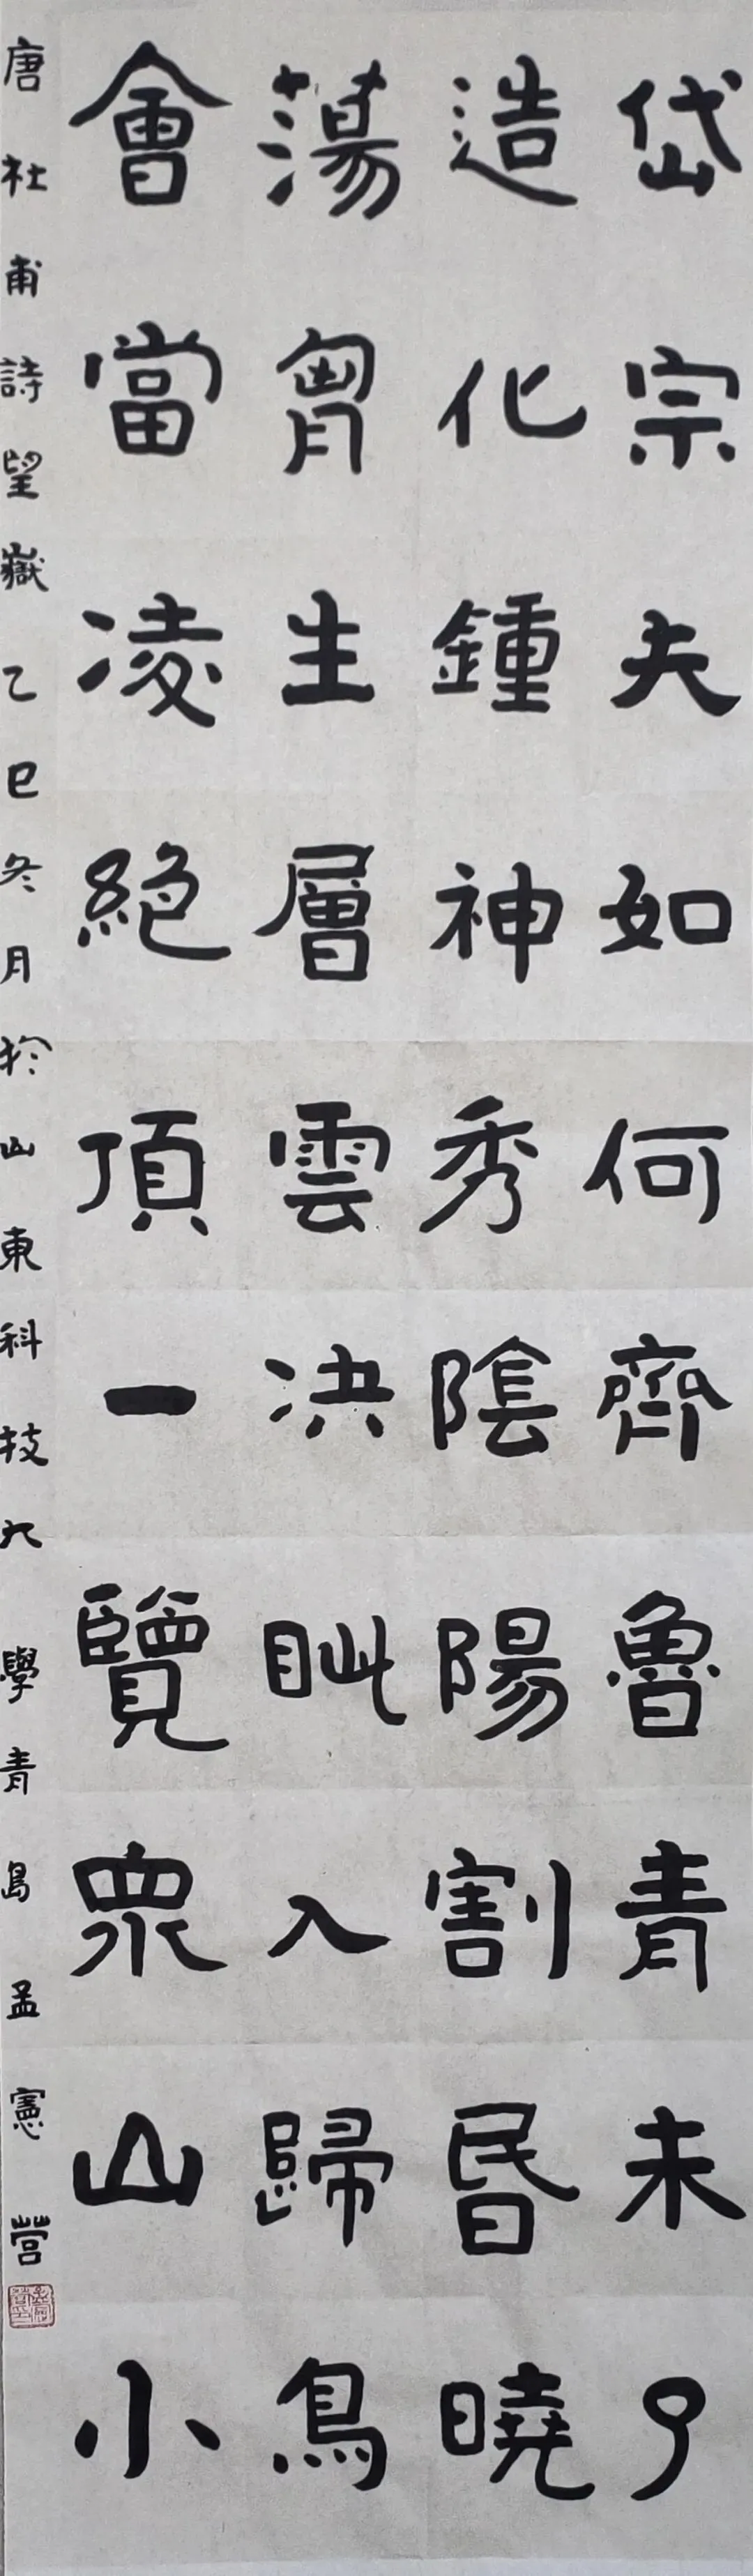 岱宗夫如何齊魯青未了
造化鍾神秀陰陽割昬曉
蕩胷生層雲决眦入歸鳥
會當凌絶頂一覽眾山小
唐杜甫詩望嶽乙巳冬月於山東科技大學青島孟憲營